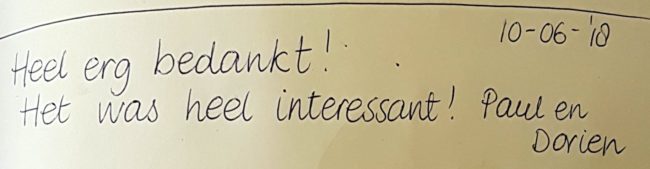 10-06-'18
Heel erg bedankt!
Het was heel interessant! Paul en
Dorien